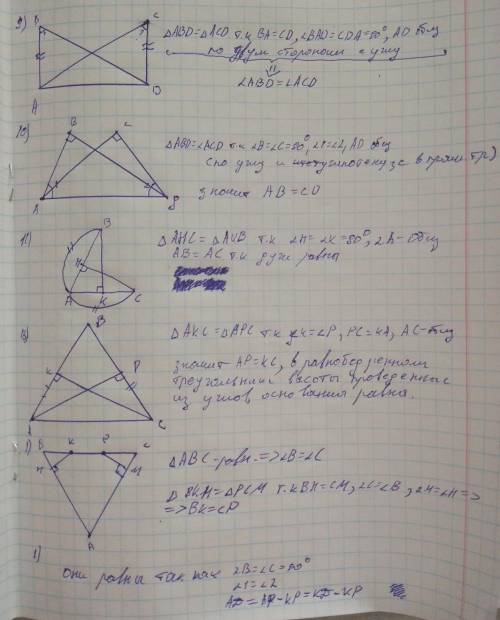 9) ΔABD=ΔACD т.к BA=CD, ∠BAD=∠CDA=90°, AD общ
по двум сторонам и углу
⇓
∠ABD=∠ACD
B C
A D
10) ΔABD=∠ACD т.к ∠B=∠C=90°, ∠1=∠2, AD общ
(по углу и гипотенузе в прям. тр.)
значит AB=CD
B C
A
11) ΔAHC=ΔAKB т.к ∠H=∠K=90°, ∠A-общ
AB=AC т.к дуги равны
B
H
A K C
ΔAKC=ΔAPC т.к ∠K=∠P, PC=KA, AC-общ
значит AP=KC, в равнобедренном
треугольнике высоты проведенные
из углов основания равны.
B
K P
C
ΔABC-равн.=>∠B=∠C
ΔBKH=ΔPCM т.к BH=CM, ∠C=∠B, ∠H=∠H=>
=>BK=CP
B K P C
H M
A
1)
Они равны так как ∠B=∠C=90°
∠1=∠2